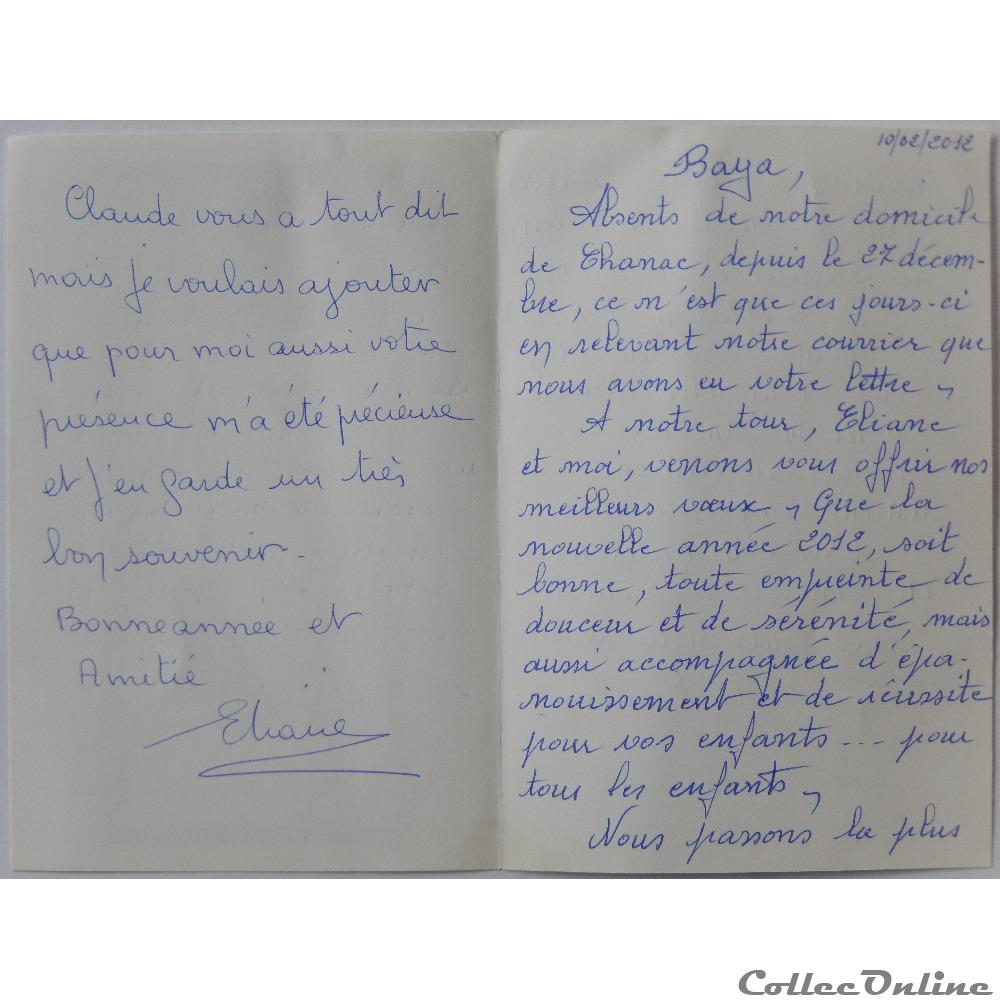 Claude vous a tout dit
mais je voulais ajouter
que pour moi aussi votre
présence m'a été précieuse
et j'en garde un très
bon souvenir.
Bonne année et
Amitié
Eliane
10/02/2012
Baya,
Absents de notre domicile
de Chanac, depuis le 27 décem-
bre, ce n'est que ces jours-ci
en relevant notre courrier que
nous avons eu votre lettre.
A notre tour, Eliane
et moi, venons vous offrir nos
meilleurs vœux. Que la
nouvelle année 2012, soit
bonne, toute empreinte de
douceur et de sérénité, mais
aussi accompagnée d'épa-
nouissement et de réussite
pour vos enfants... pour
tous les enfants.
Nous passons la plus
CollecOnline